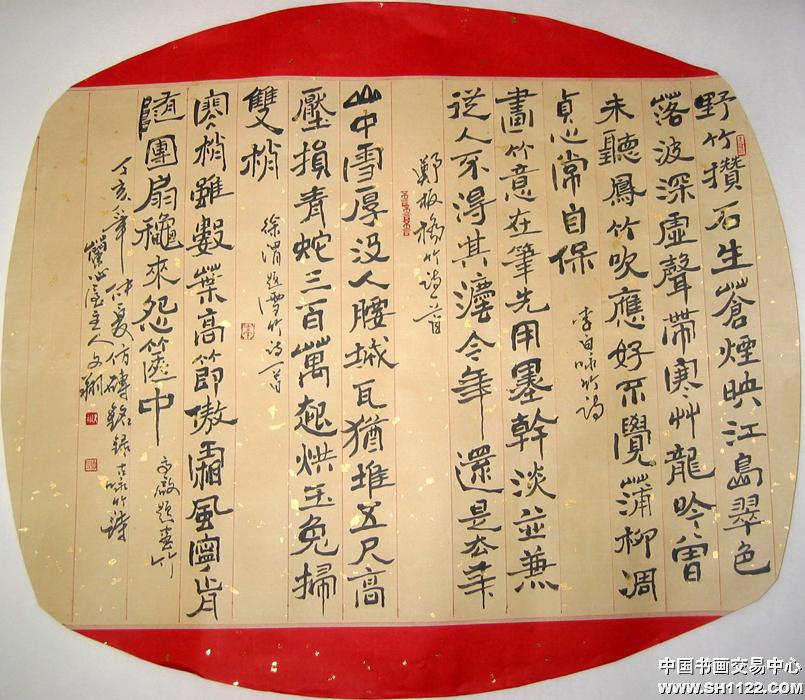 野竹攢石生蒼煙映江島翠色
落波深虛聲帶寒艸龍吟曾
未聽鳳竹吹應好不覺蒲柳凋
貞心常自保
李白咏竹詩
畫竹意在筆先用墨幹淡並兼
從人不得其濃今年還是去年
鄭板橋竹詩一首
山中雪厚沒人腰城瓦猶堆五尺高
壓損青蛇三百萬起烘玉兔掃
雙梢
徐渭題雪竹詩一首
寒梢雖數葉高節傲霜風寧肯
隨團扇穐來怨篋中
題畫竹
丁亥年仲夏仿磚銘錄古咏竹詩
主人文
中国书画交易中心
www.SH1122.COM